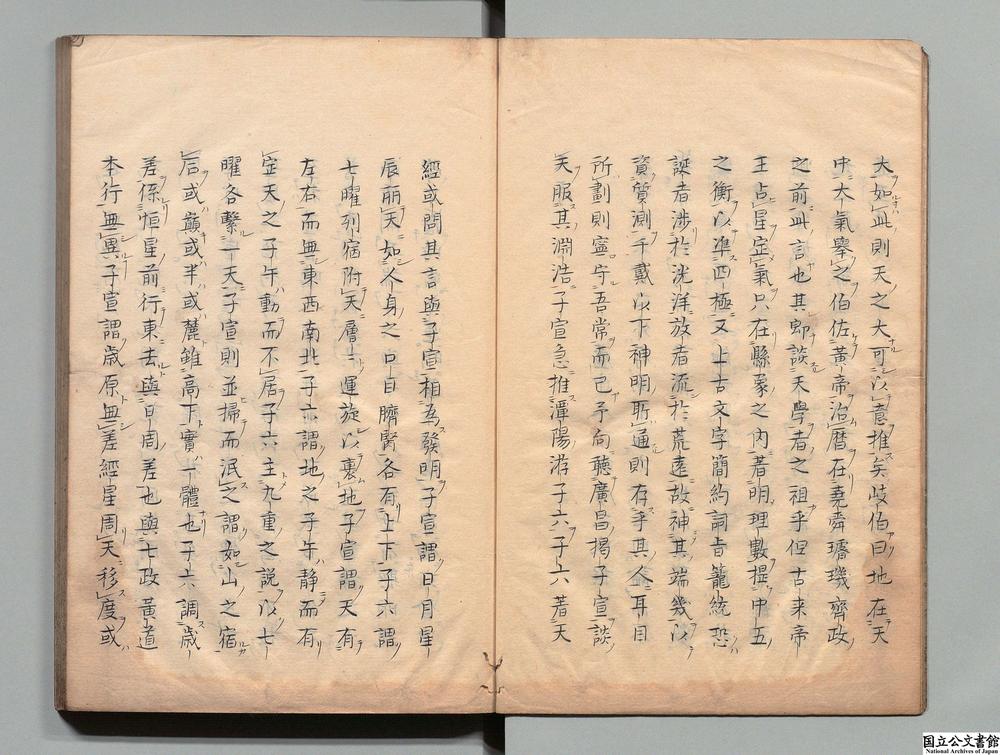 大如此則天之大可以意推矣岐伯曰地在天
中大氣擧之伯佐黃帝治曆在堯舜璿璣齊政
之前此言也其卽談天學者之祖乎但古来帝
王占星定氣只在縣象之內著明理數提中五
之衡以準四極又上古文字簡約詞旨籠統恐
誕者涉於洸洋放者流於荒遠故神其端幾以
資質測千載以下神明所通則存乎其人耳目
所劃則寧守吾常而已予向聽廣昌揭子宣談
天服其淵浩子宣急推潭陽游子六子六著天
經或問其言與子宣相為發明子宣謂日月星
辰丽天如人身之口目臍腎各有上下子六謂
七曜列宿附天層層運旋以裹地子宣謂天有
左右而無東西南北子六謂地之子午静而有
定天之子午動而不居子六主九重之説以七
曜各繫一天子宣則並掃而泯之謂如山之宿
后或巔或半或麓雖高下實一體也子六謂歳
差係恒星前行東去與日周差也與七政黃道
本行無異子宣謂歳原無差經星周天移度或
国立公文書館
National Archives of Japan